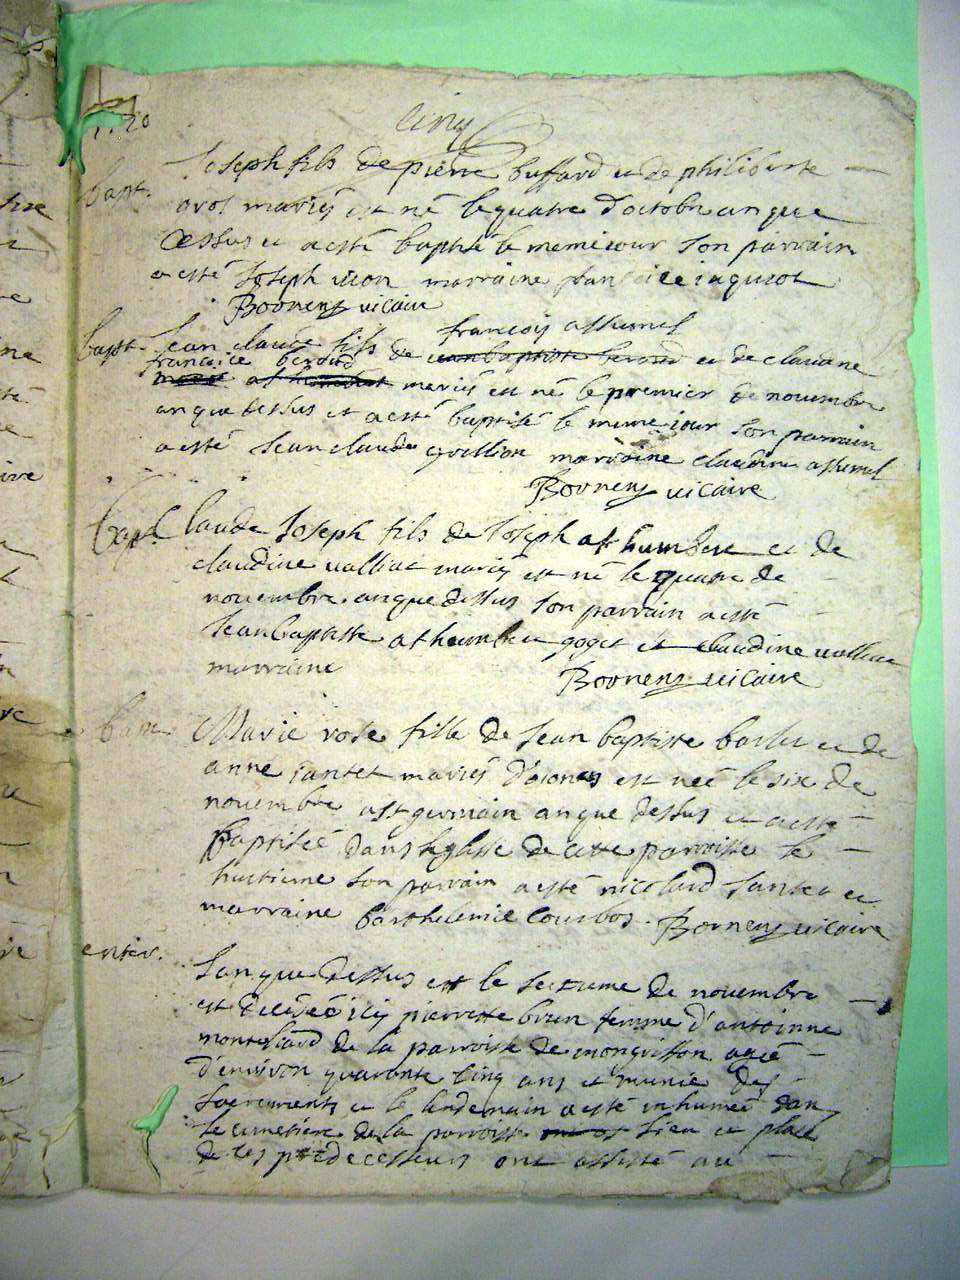 cinq
bapt. Joseph fils de pierre buffard et de philiberte
avos mariés est né le quatre d'octobre an que
dessus et a esté baptisé le meme iour son parrain
a esté Joseph marraine
Boonens vicaire
francois athumel
bapt. Jean claude fils de et de claudine
francoise beroud
mariés est né le premier de novembre
an que dessus et a esté baptisé le meme iour son parrain
a esté Jean claude marraine claudine athumel
Boonens vicaire
bapt. Claude Joseph fils de Joseph athumbert et de
claudine mariés est né le quatre de
novembre an que dessus son parrain a esté
Jean baptiste goget et claudine
marraine Boonens vicaire
bapt. Marie rose fille de Jean baptiste et de
anne iantet mariés est neé le six de
novembre a st germain an que dessus et a esté
baptiseé dans leglise de cette parroisse le
huitieme son parrain a esté nicolard et
marraine barthelemie courbos. Boonens vicaire
enter.
Lan que dessus et le de novembre
est decedeé icy pierrette brun femme d'antoinne
de la parroisse de ageé
d'environ quarante cinq ans et munie des
sacrements et le lendemain a esté inhumeé dans
le cimetiere de la parroisse lieu et place
de ses predecesseurs ont assisté au